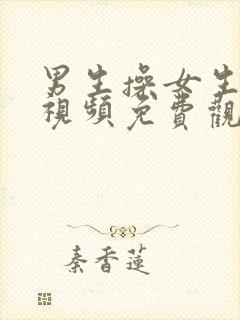 男生操女生
視頻免費觀
秦香蓮